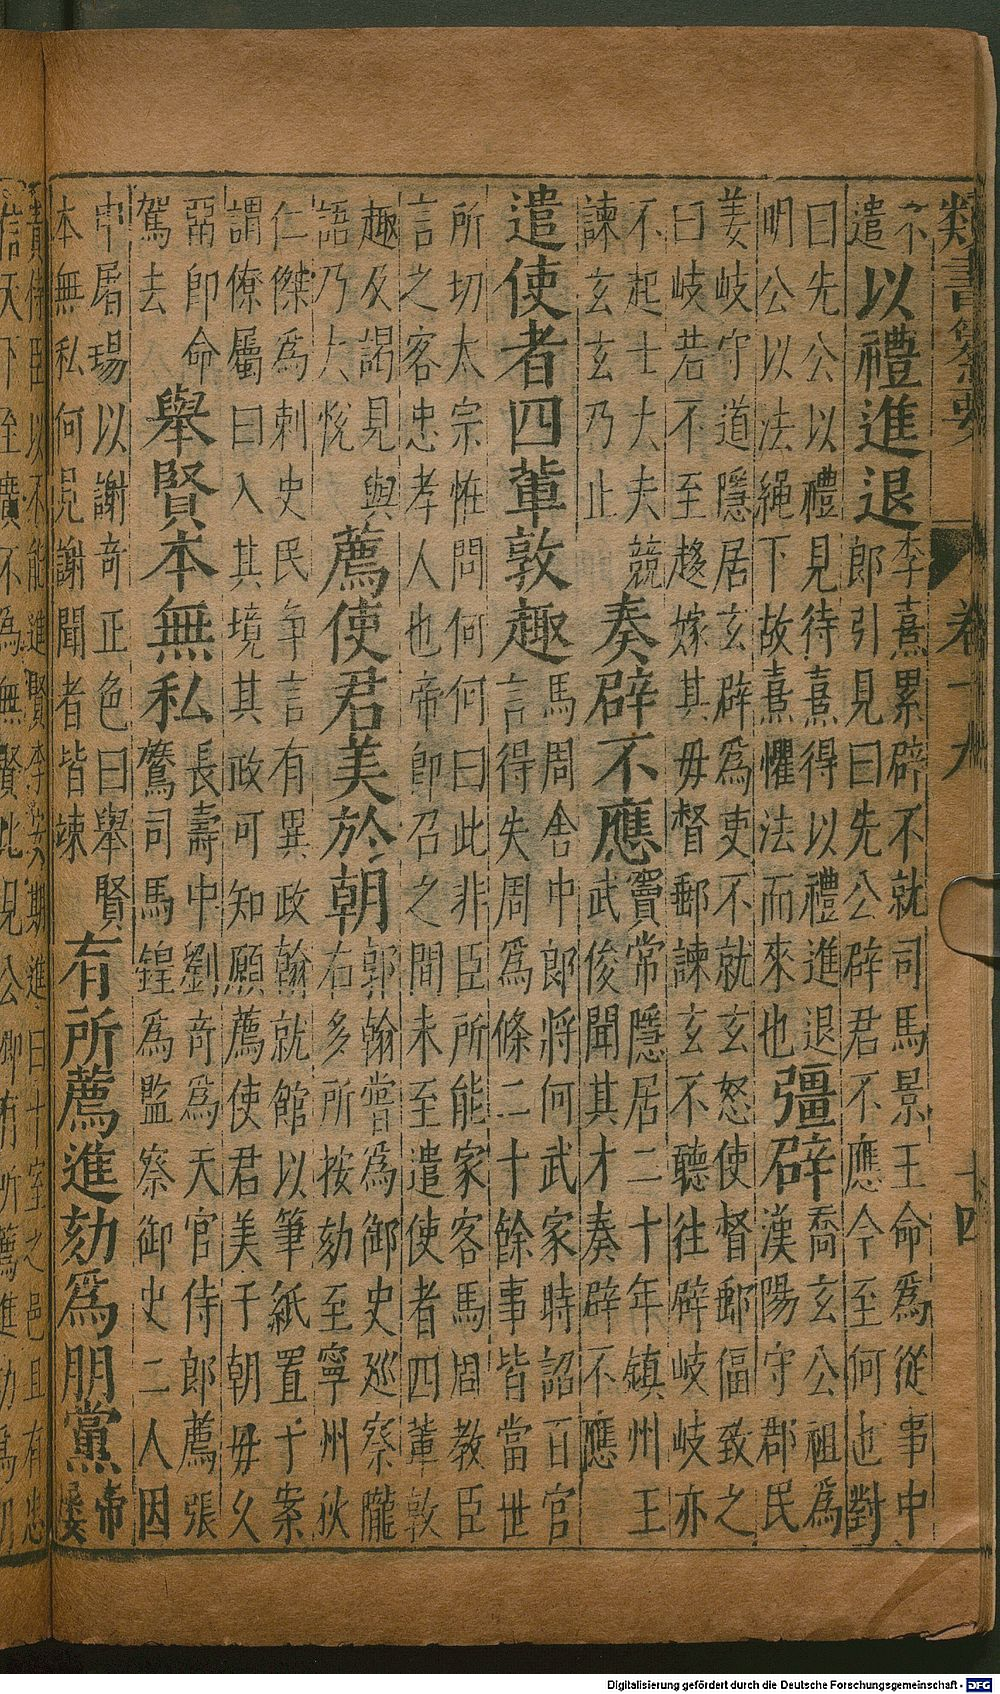 類書纂要 卷十九 十四
不
遣
以禮進退
李熹累辟不就司馬景王命為從事中
郎引見曰先公辟君不應今至何也對
曰先公以禮見待熹得以禮進退
明公以法繩下故熹懼法而來也
彊辟
喬玄公祖為
漢陽守郡民
姜岐守道隱居玄辟為吏不就玄怒使督郵偪致之
曰岐若不至趍嫁其毋督郵諫玄不聽往辟岐岐亦
不起士大夫競
諫玄玄乃止
奏辟不應
竇常隱居二十年鎮州王
武俊聞其才奏辟不應
遣使者四輩敦趣
馬周舍中郎將何武家時詔百官
言得失周為條二十餘事皆當世
所切太宗恠問何何曰此非臣所能家客馬周教臣
言之客忠孝人也帝即召之間未至遣使者四輩敦
趣及謁見與
語乃大悅
薦使君美於朝
郭翰嘗為御史巡察隴
右多所按劾至寧州狄
仁傑為刺史民争言有異政翰就館以筆紙置于案
謂僚屬曰入其境其政可知願薦使君美于朝毋久
即命
駕去
舉賢本無私
長壽中劉奇為天官侍郎薦張
鷟司馬鍠為監察御史二人因
申屠瑒以謝奇正色曰舉賢
本無私何見謝聞者皆竦
有所薦進劾為朋黨
帝
屢
責侍臣以不能進賢李安期進曰十室之邑且有忠
信天下至廣不為無賢比見公卿有所薦進劾為朋
Digitalisierung gefördert durch die Deutsche Forschungsgemeinschaft - DFG